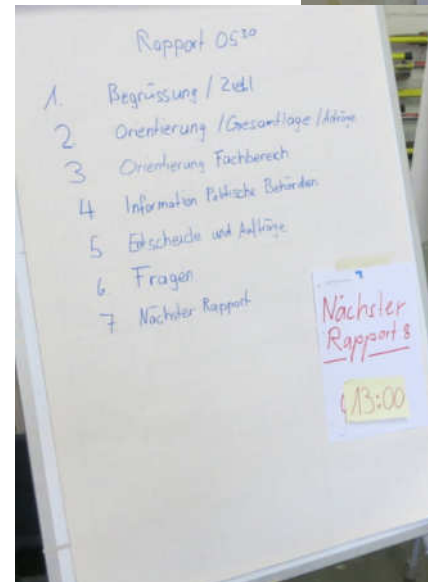 Rapport 05³⁰
1. Begrüssung / Ziel
2 Orientierung / Gesamtlage / Aufträge
3 Orientierung Fachbereich
4 Information Politische Behörden
5 Entscheide und Aufträge
6 Fragen
7 Nächster Rapport
Nächster
Rapport 8
13:00